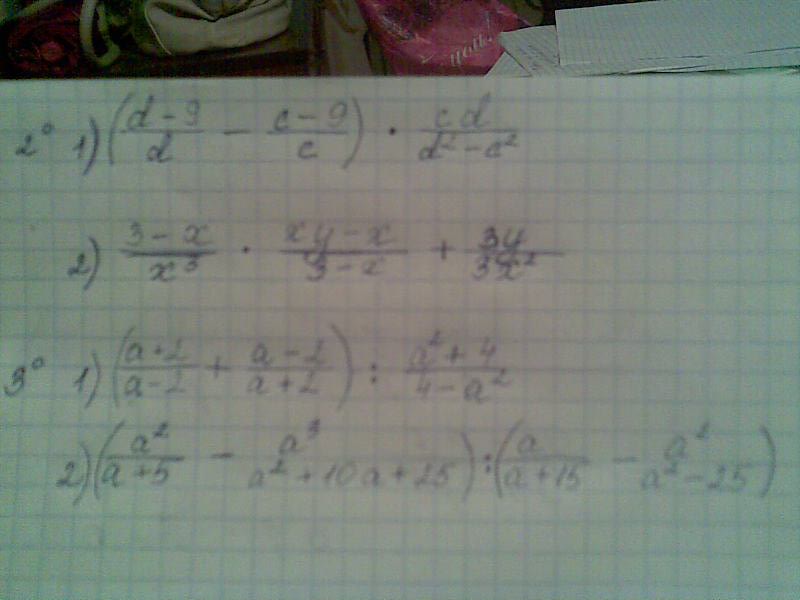 2° 1) (d-9/d - c-9/c) · cd/d²-c²
2) 3-x/x³ · xy-x/3-x + 3y/3x²
3° 1) (a+2/a-2 + a-2/a+2) : a²+4/4-a²
2) (a²/a+5 - a³/a²+10a+25) : (a/a+15 - a²/a²-25)